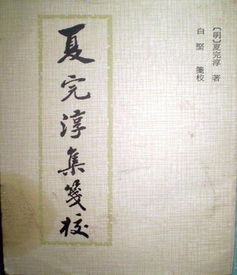 [明]夏完淳 著
白堅 箋校
夏完淳集箋校